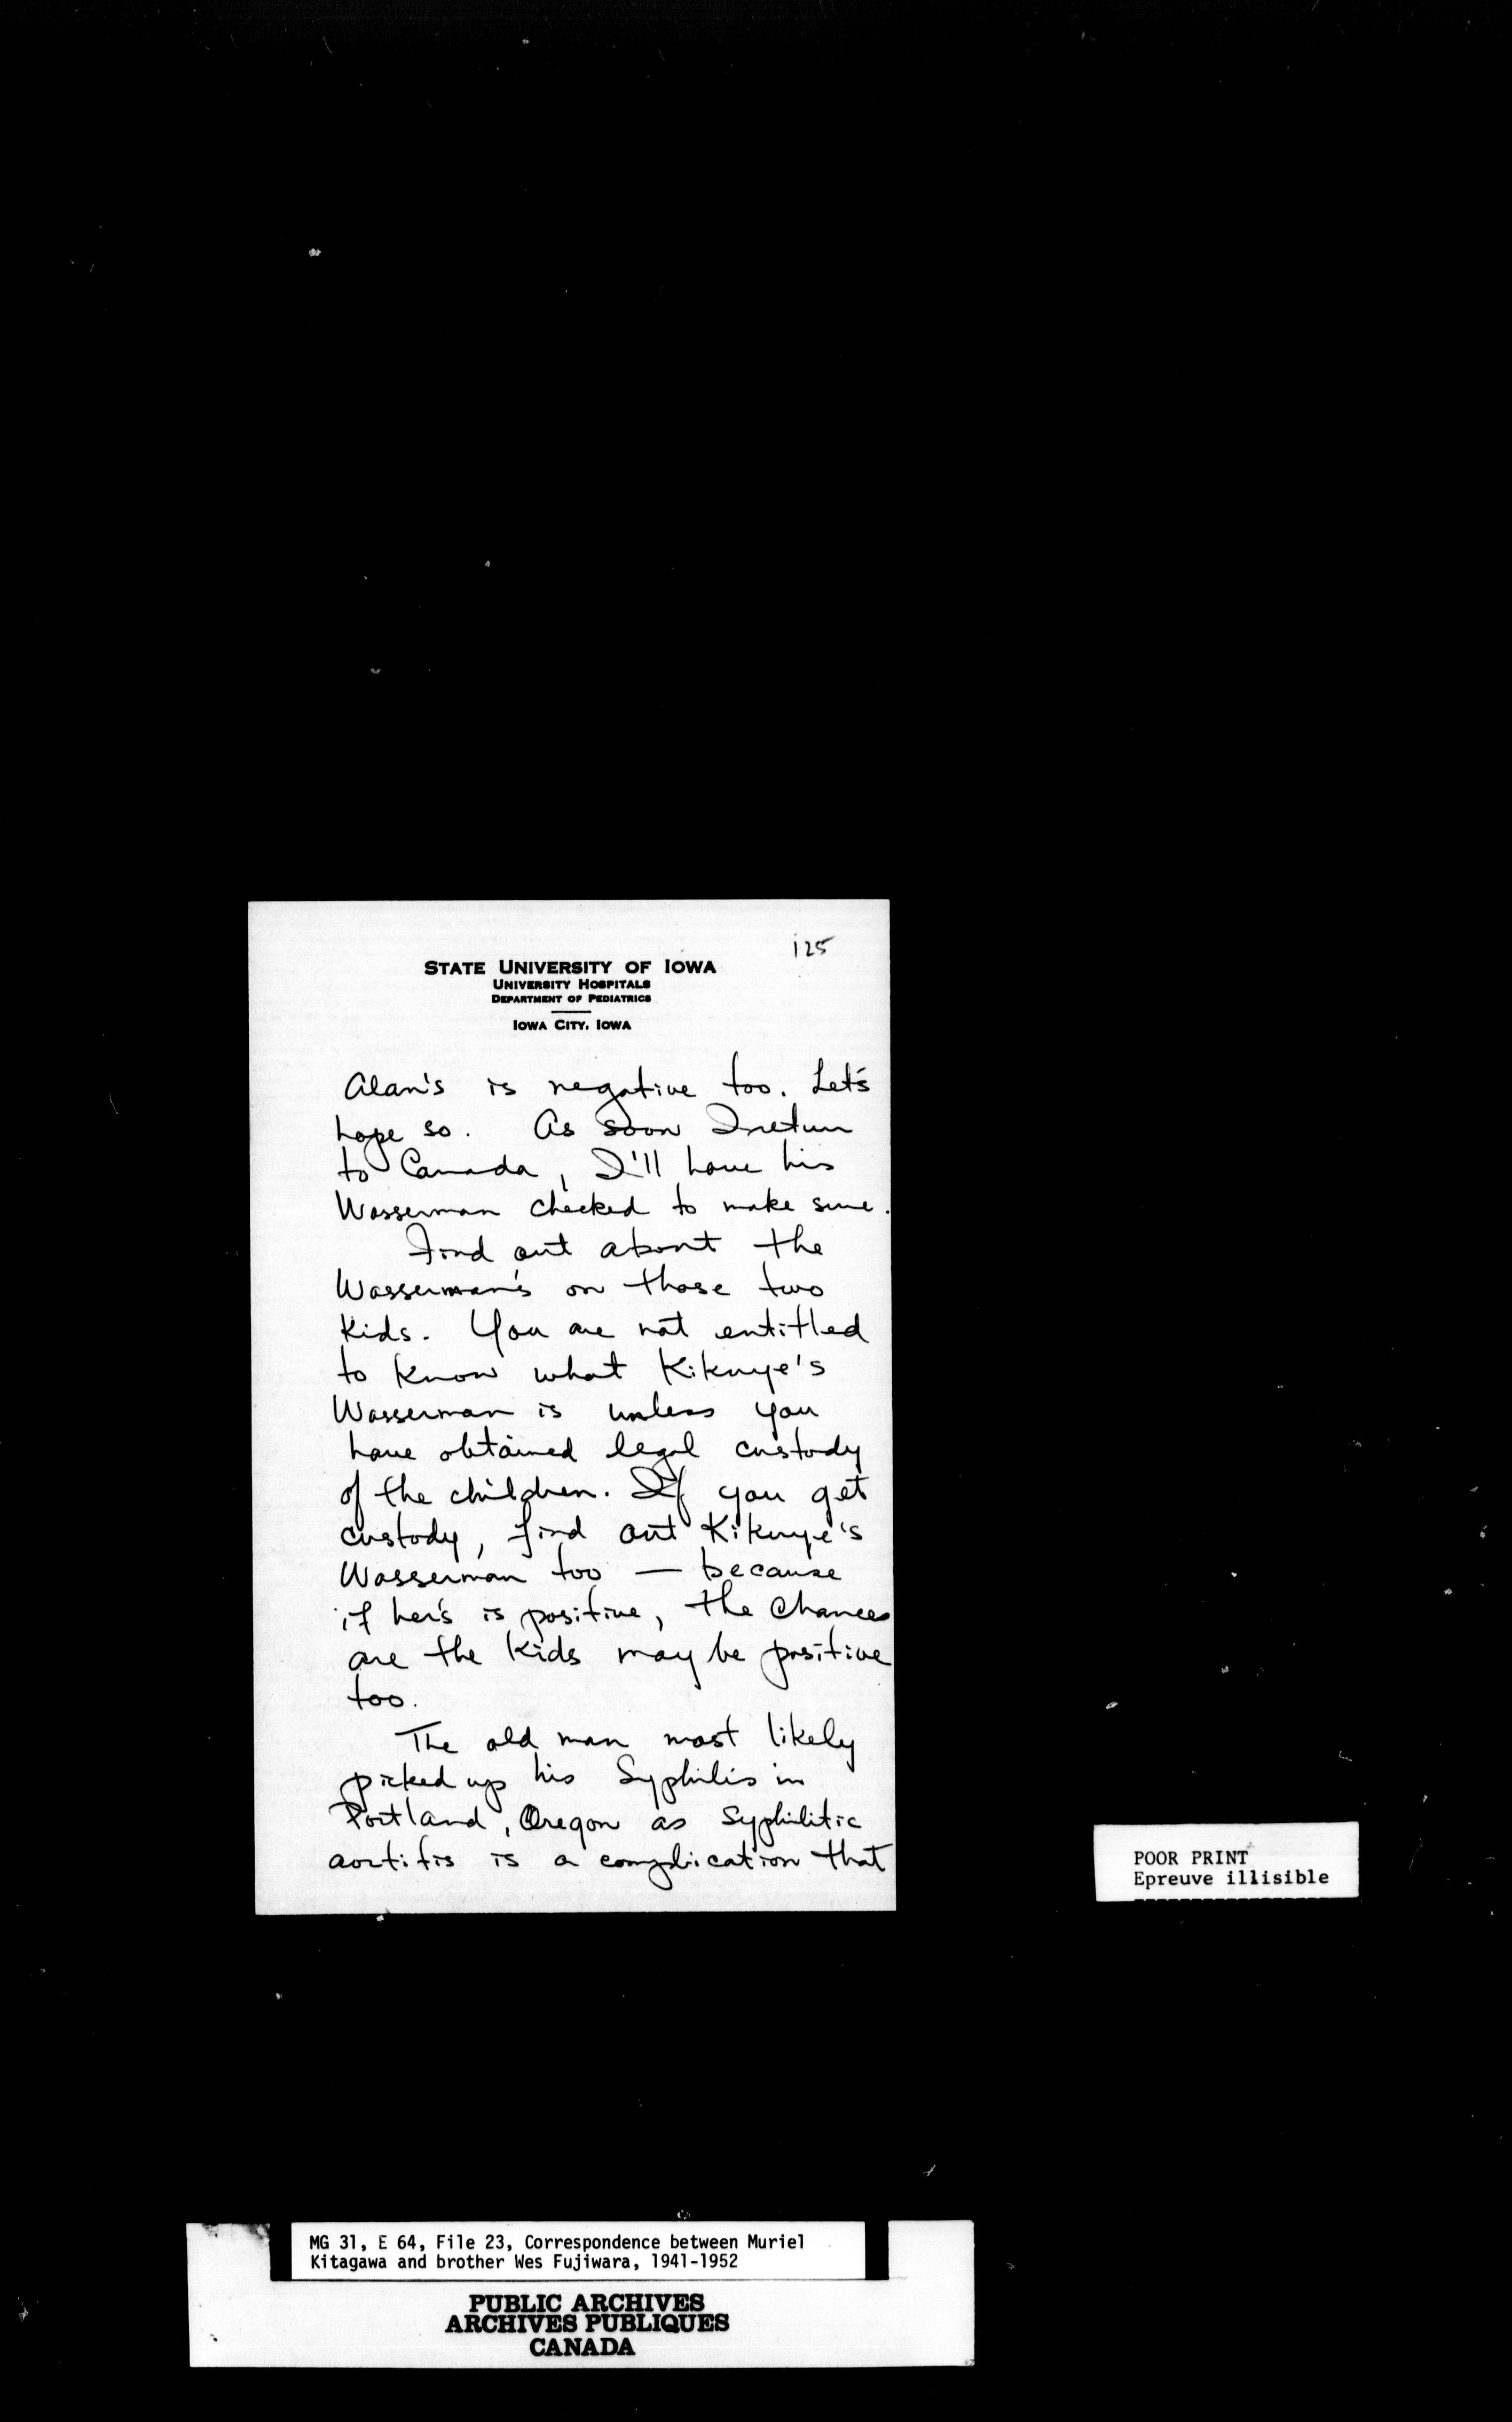 125
STATE UNIVERSITY OF IOWA
UNIVERSITY HOSPITALS
DEPARTMENT OF PEDIATRICS
IOWA CITY, IOWA
Alan's is negative too. Let's
hope so. As soon I return
to Canada, I'll have his
Wasserman checked to make sure.
Find out about the
Wasserman's on those two
kids. You are not entitled
to know what Kikuye's
Wasserman is unless you
have obtained legal custody
of the children. If you get
custody, find out Kikuye's
Wasserman too — because
if her's is positive, the chances
are the kids may be positive
too.
The old man most likely
picked up his Syphilis in
Portland, Oregon as Syphilitic
aortitis is a complication that
POOR PRINT
Epreuve illisible
MG 31, E 64, File 23, Correspondence between Muriel
Kitagawa and brother Wes Fujiwara, 1941-1952
PUBLIC ARCHIVES
ARCHIVES PUBLIQUES
CANADA